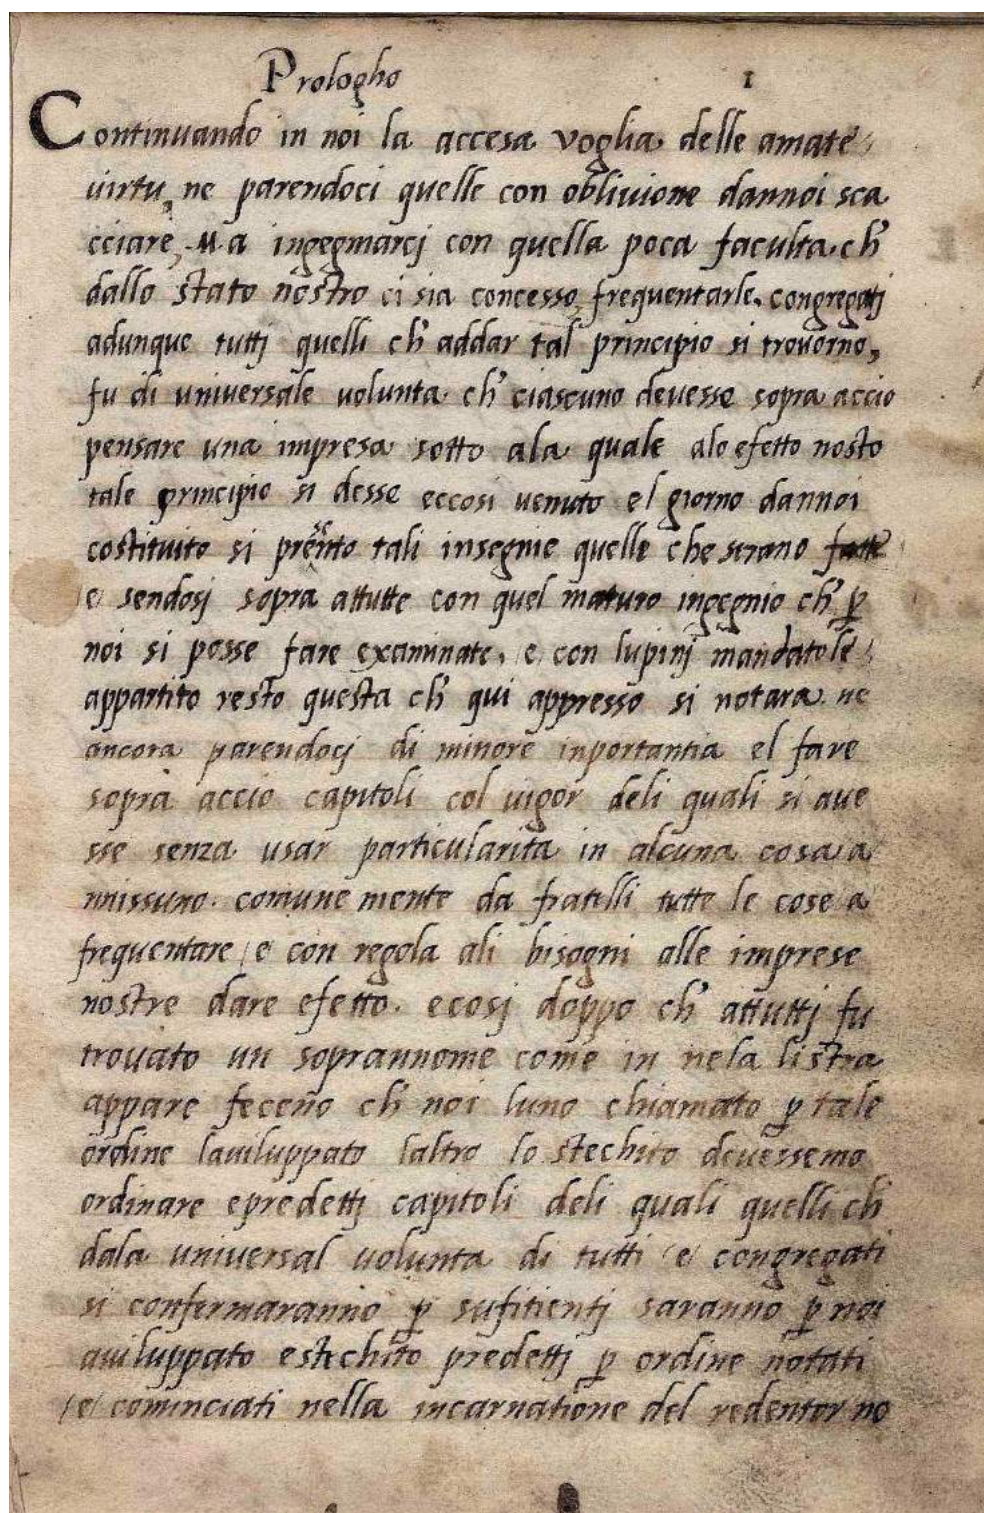 Prologho 1
Continuando in noi la accesa voglia delle amate
virtu, ne parendoci quelle con oblivione dannoi sca
cciare, Ma ingegnarcj con quella poca faculta ch'
dallo stato nostro ci sia concesso, frequentarle. congregatj
adunque tuttj quelli ch' addar tal principio si trovorno,
fu di universale volunta ch' ciascuno devesse sopra accio
pensare una impresa sotto ala quale alo efetto nosto
tale principio si desse eccosi venuto el giorno dannoi
costituito si tali insegnie quelle che
e sendosj sopra attutte con quel maturo ingegnio ch' p
noi si posse fare examinate, e con lupinj mandatole
appartito resto questa ch' qui appresso si notara. ne
ancora parendocj di minore inportantia el fare
sopra accio capitoli col vigor deli quali si ave
sse senza usar particularita in alcuna cosa a
nnissuno. comune mente da fratelli tutte le cose a
frequentare e con regola ali bisogni alle imprese
nostre dare efetto. ecosj doppo ch' attuttj fu
trovato un soprannome come in nela listra
appare feceno ch' noi luno chiamato p tale
ordine laviluppato laltro lo stechito devessemo
ordinare epredettj capitoli deli quali quelli ch'
dala universal volunta di tutti e congregati
si confermaranno p sufitientj saranno p noi
aviluppato estechito predettj p ordine notati
e cominciati nella incarnatione del redentor no